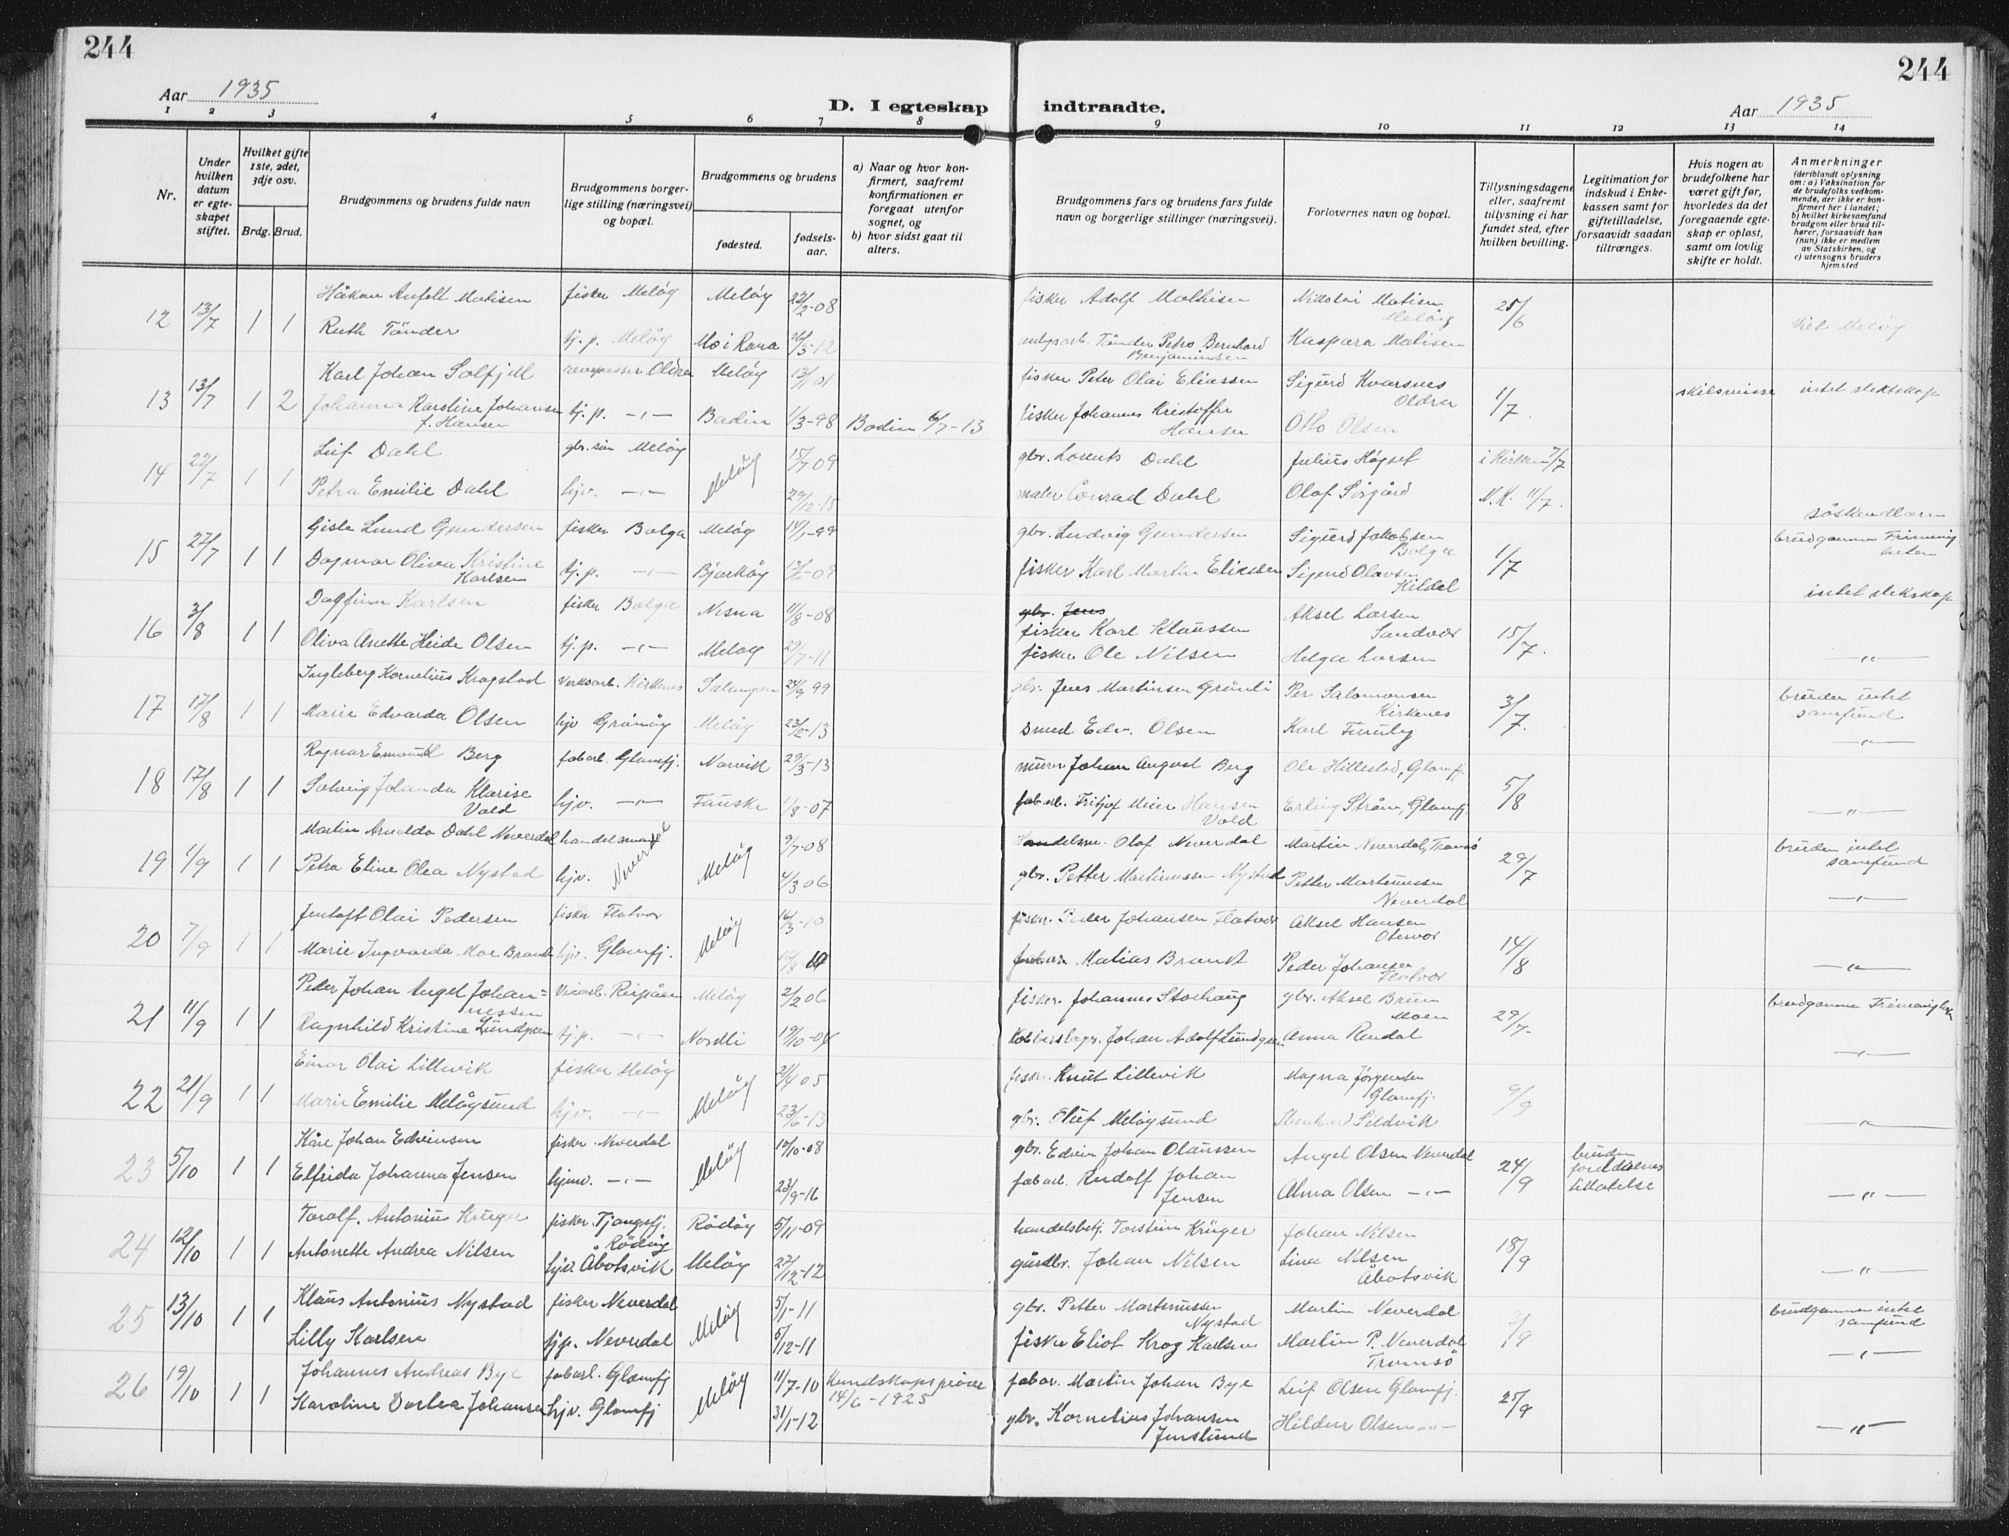 244
244
Aar 1935
D. I egteskap indtraadte.
Aar 1935
1 2 3 4 5 6 7 8 9 10 11 12 13 14
Nr.
Under hvilken datum er egteskapet stiftet.
Hvilket gifte 1ste, 2det, 3dje osv.
Brdg. Brud.
Brudgommens og brudens fulde navn
Brudgommens borgerlige stilling (næringsvei) og bopæl.
Brudgommens og brudens
fødested.
fødselsaar.
a) Naar og hvor konfirmert, saafremt konfirmationen er foregaat utenfor sognet, og
b) hvor sidst gaat til alters.
Brudgommens fars og brudens fars fulde navn og borgerlige stillinger (næringsvei).
Forlovernes navn og bopæl.
Tillysningsdagene eller, saafremt tillysning ei har fundet sted, efter hvilken bevilling.
Legitimation for indskud i Enkekassen samt for giftetilladelse, forsaavidt saadan tiltrænges.
Hvis nogen av brudefolkene har været gift før, hvorledes da det foregaaende egteskap er opløst, samt om lovlig skifte er holdt.
Anmerkninger
(deriblandt oplysning om: a) Vaksination for de brudefolks vedkommende, der ikke er konfirmert her i landet; b) hvilket kirkesamfund brudgom eller brud tilhører, forsaavidt han (hun) ikke er medlem av Statskirken, og c) utensogns bruders hjemsted
12 13/7 1 1 Håkon Anfelt Matisen fisker Meløy Meløy 22/2-08 fisker Adolf Mathisen Nikolai Matisen Meløy 25/6
Ruth Tønder tj.p. Meløy Mo i Rana 26/5-12 Tønder Petro Bernhard Benjaminsen Kaspara Matisen Viet Meløy
13 13/7 1 2 Karl Johan Solfjell Oldra Meløy 13/1 01 fisker Peter Olai Eliassen Sigurd Kvarsnes Oldra 1/7. skilsmisse intet slektskap
Johanna Karoline Johansen f. Hansen tj.p. -"- Bodin 1/3-98 Bodin 6/7-13 fisker Johannes Kristoffer Hansen Otto Olsen
14 27/7 1 1 Leif Dahl gbr. søn Meløy Meløy 15/7 09 gbr. Lorents Dahl Julius Høgset i Kirken 7/7
Petra Emilie Dahl hjv. -"- 29/12-15 maler Conrad Dahl Olaf Sørgård N.K. 11/7. søskendbarn
15 27/7 1 1 Gisle Lund Gundersen fisker Bolga Meløy 14/1-99 gbr. Ludvig Gundersen Sigurd Jakobsen Bolga 1/7 brudgommen Frimenig
Dagmar Oliva Kristine Karlsen tj.p. -"- Bjarkøy fisker Karl Martin Eliassen Sigurd Olavsen Hildal intet slekskap
16 3/8 1 1 Dagfinn Karlsen fisker Bolga Nesna 11/8-08 gbr. Jens fisker Karl Klaussen Aksel Larsen Sandvær 15/7.
Oliva Anette Heide Olsen tj.p. -"- Meløy 29/7-11 fisker Ole Nilsen Helga Larsen -"-
17 17/8 1 1 Ingleberg Kornelius Kragstad Verksarb. Kirkenes Salangen 24/9 99 gbr. Jens Martinsen Grønli Per Salomonsen Kirkenes 3/7. bruden intet samfund
Marie Edvarda Olsen hjv Grønøy Meløy 23/2-13 smed Edv. Olsen Karl Furuly -"-
18 17/8 1 1 Ragnar Emanuel Berg fabarb. Glomfj. Narvik 29/3-13 murer Johan August Berg Ole Hillestad, Glomfj. 5/8
Solveig Jolanda Klarise Vold hjv. -"- Fauske 1/8-07 fabarb. Fritjof Meier Hansen Vold Erling Strøm, Glomfj -"-
19 1/9 1 1 Martin Arnoldo Dahl Neverdal handelsmann Neverdal Meløy 9/7-08 Handelsm. Olaf Neverdal Martin Neverdal, Tromsø 29/7 bruden intet samfund
Petra Eline Olea Nystad hjv. 4/3 06 gbr. Petter Martinussen Nystad Petter Martinussen Neverdal -"-
20 7/9 1 1 Jentoft Olai Pedersen fisker Flatvær Meløy 16/3-10 fisker. Peder Johansen Flatvær Aksel Hansen Otervær 14/8
Marie Ingvarda Moe Brandt hjv. Glomfj. Matias Brandt Peder Johansen Flatvær -"-
21 11/9 1 1 Peder Johan Angel Johan=nessen Reipåen Meløy 2/2 06 fisker. Johannes Storhaug gbr. Aksel Bruun Moen 29/7. brudgommen Frimenighet
Ragnhild Kristine Lundgren tj.p. -"- Nordli 19/10-04 Johan Adolf Lundgren Anna Rendal -"-
22 21/9 1 1 Einar Olai Lillevik fisker Meløy Meløy 21/4 05 fisker. Knut Lillevik Magna Jørgensen Glomfj. 9/9
Marie Emilie Meløysund hjv. -"- 23/6-13 gbr. Oluf Meløysund Seldvik -"-
23 5/10 1 1 Kåre Johan Edvinsen fisker Neverdal Meløy 12/10-08 gbr. Edvin Johan Olaussen Angel Olsen Neverdal 24/9 bruden foreldrenes tillatelse
Elfrida Johanna Jensen hjmv. -"- 23/9-16 fabarb. Rudolf Johan Jensen Alma Olsen -"- -"-
24 12/10 1 1 Toralf. Antonius Krüger fisker. Tjongsfj. Rødøy Rødøy 5/11-09 handelsbetj. Torstein Krüger Johan Nilsen 18/9
Antonette Andrea Nilsen hjv. Åbotsvik Meløy 27/12-12 gårdbr. Johan Nilsen Lina Nilsen Åbotsvik -"-
25 13/10 1 1 Klaus Antonius Nystad fisker Neverdal Meløy 5/1-11 gbr. Petter Martinussen Nystad Martin Neverdal /9 brudgommen intet samfund
Lilly Karlsen hjv. Neverdal 5/12-11 fisker Eliot Krog Karlsen Martin P. Neverdal Tromsø -"-
26 19/10 1 1 Johannes Andreas Bye fabarb. Glomfj Meløy 11/7-10 Kundskapsprøve 14/6-1925 fabar. Martin Johan Bye Leif Olsen Glomfj. 25/9
Karoline Dorlea Johansen hjv. Glomfj 31/1-12 gbr. Kornelius Johansen Jenslund Hildur Olsen -"- -"-